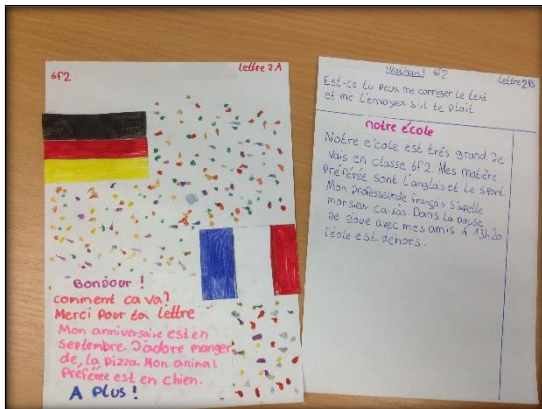 6F2
Lettre 2A
Bonjour !
comment ca va?
Merci pour ta lettre
Mon anniversaire est en
septembre. J'adore manger
de, la pizza. Mon animal
Préférée est en chien.
A plus !
6F2
Lettre 2B
Est-ce tu peux me corriger le text
et me l'envoyer s'il te plait
notre école
Notre école est trés grand. Je
vais en classe 6F2. Mes matière
Préférée sont l'anglais et le sport.
Mon professeur de français s'apelle
monsieur Dans la pause
Je Joue avec mes amis à 13h20
l'école est dehors.